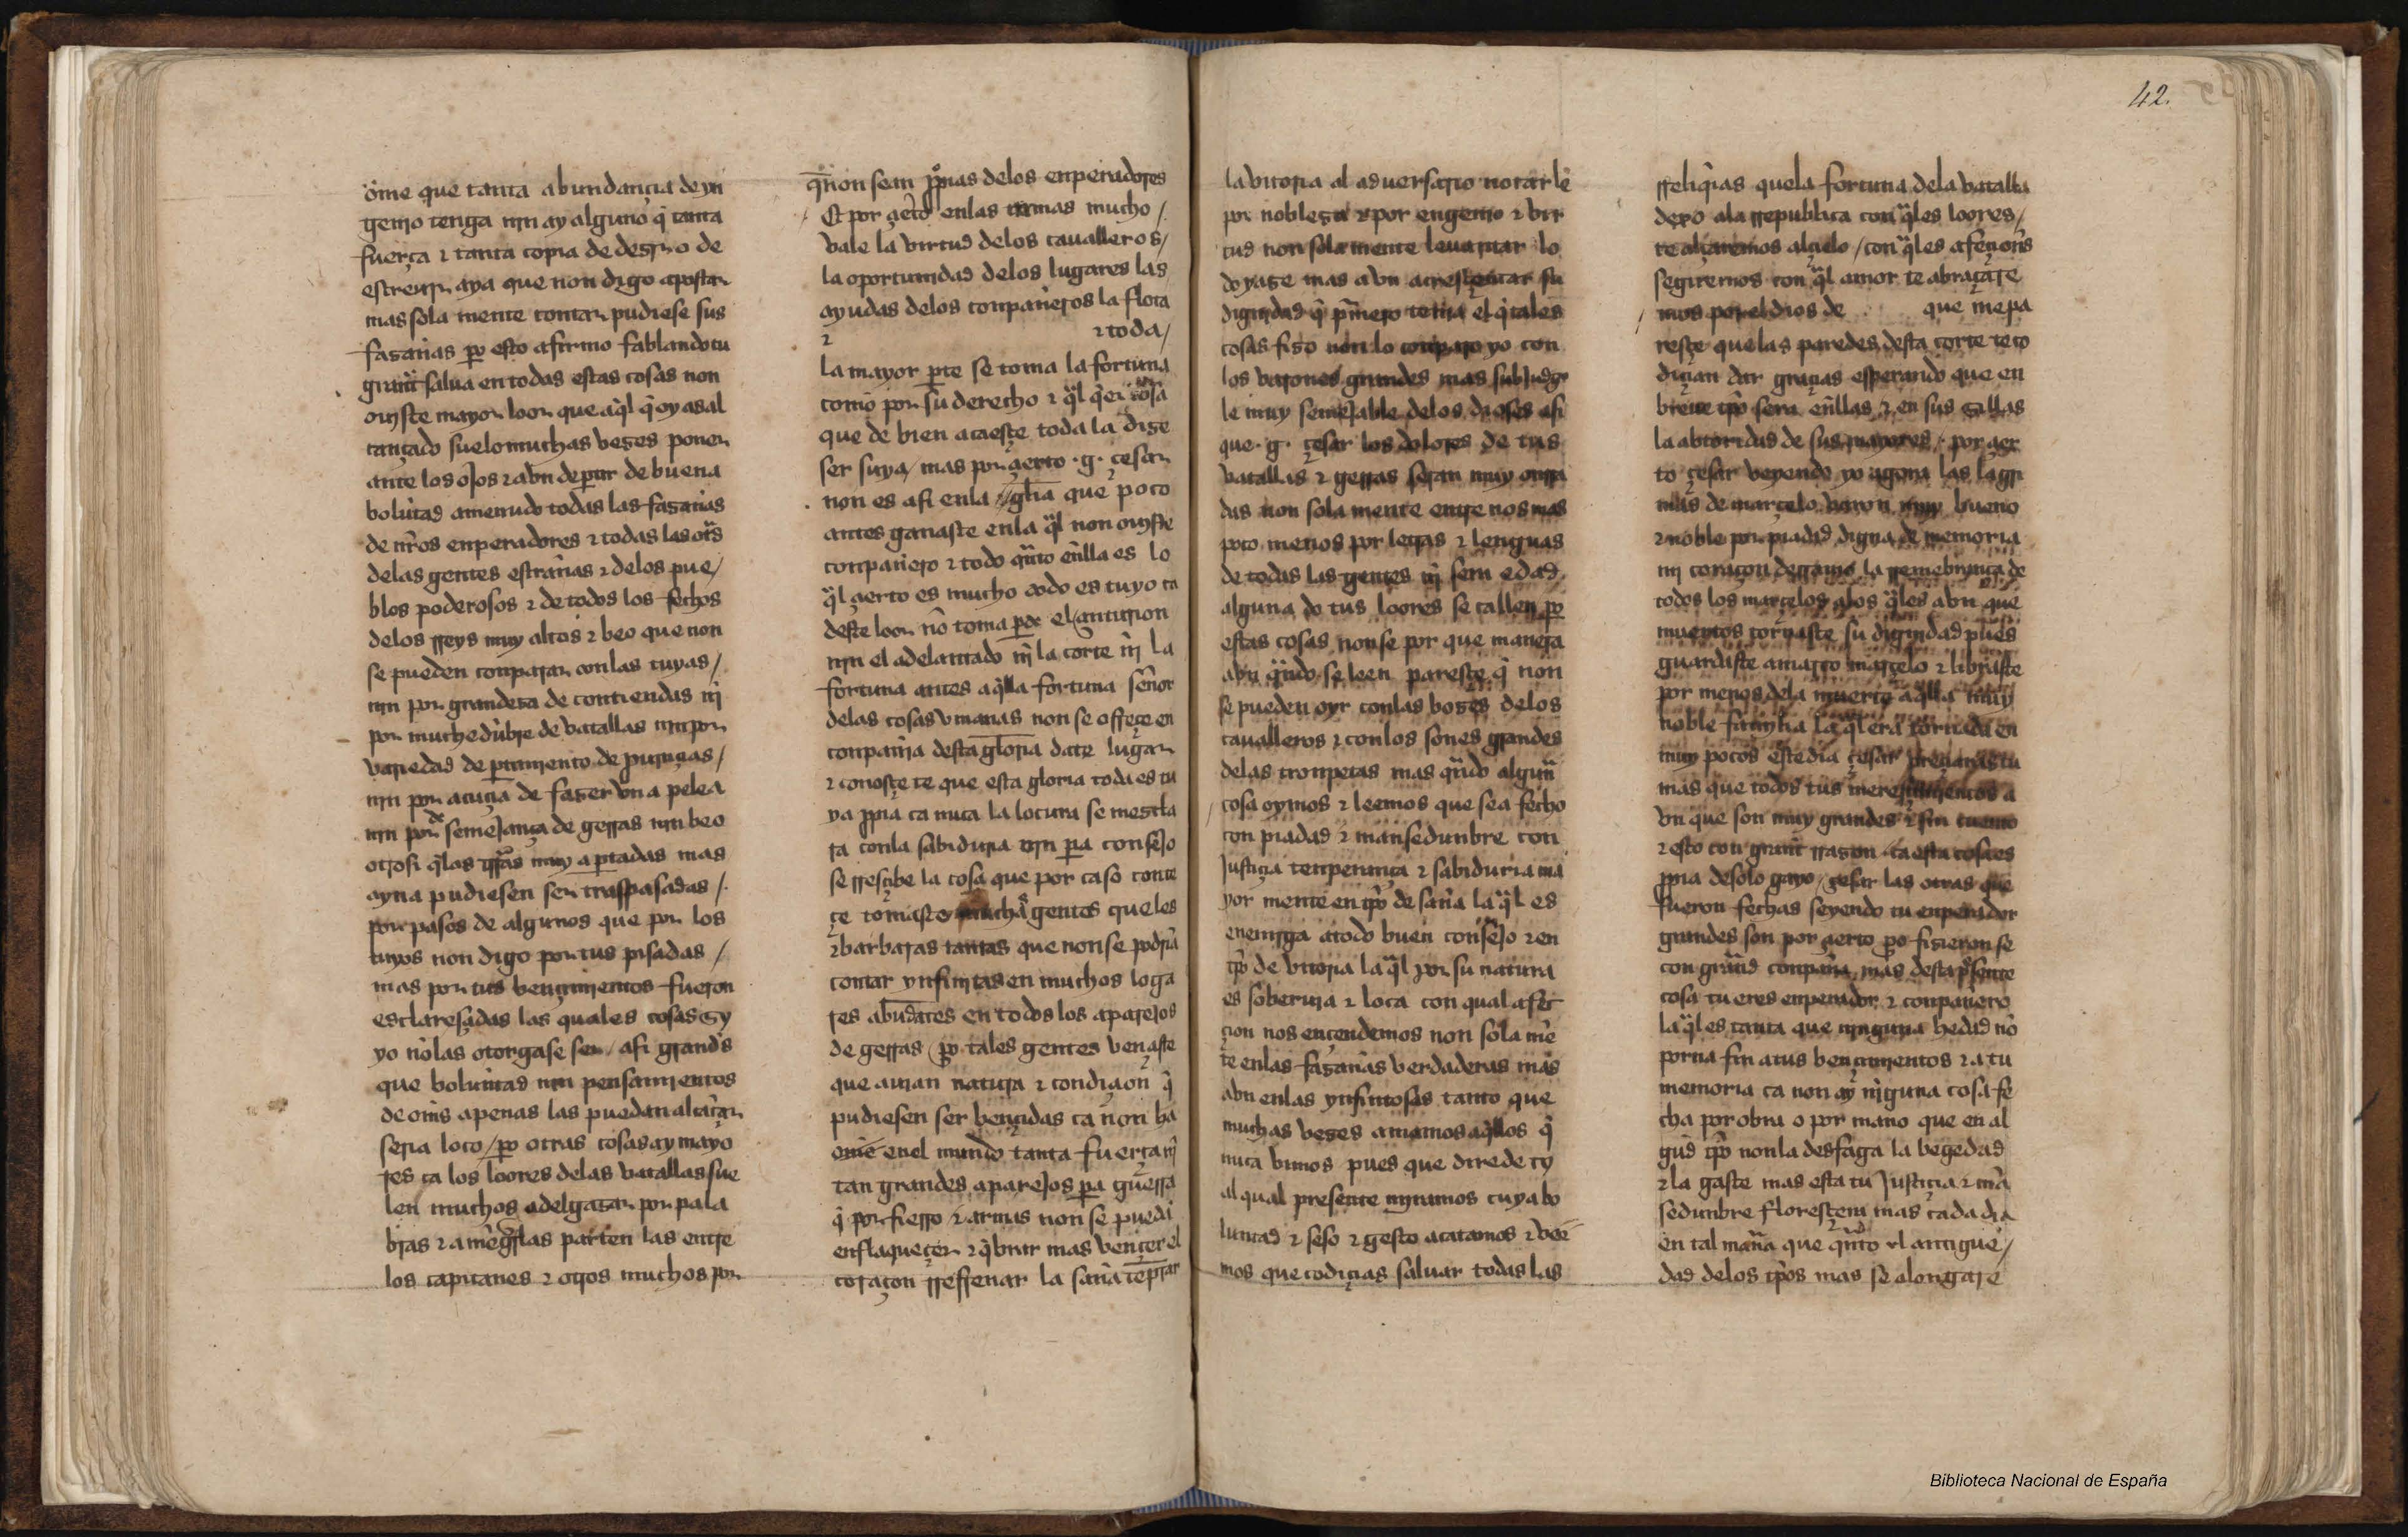 ome que tanta abundançia de yn
genio tenga nin ay alguno q̃ tanta
fuerça τ tanta copia de desir o de
escreuir aya que non digo apostar
mas sola mente contar pudiese sus
fasañas po esto afirmo fablando tu
grant salua en todas estas cosas non
ouiste mayor loor que aq̃l q̃ oy as al
cançado suelo muchas veses poner
ante los ojos τ abn departir de buena
bolutad amenudo todas las fasañas
de nr̃os enperadores τ todas las otrãs
delas gentes estrañas τ delos pue/
blos poderosos τ de todos los fechos
delos rreys muy altos τ beo que non
se pueden conparar con las tuyas/
nin por grandesa de contiendas nĩ
por muchedũbre de batallas nin por
variedad de ptimiento de prouinçias/
nin por acuçia de faser vna pelea
nin por de semejança de gerras nin beo
otrosi q̃ las trr̃as muy apartadas mas
ayna pudiesen ser traspasadas/.
por pasos de algunos que por los
tuyos non digo por tus pisadas/
mas por tus bençimientos fueron
esclaresçidas las quales cosas sy
yo nõ las otorgase ser asi grands
que boluntad nin pensamientos
de oms apenas las puedan alcãçar
seria loco/ po otras cosas ay mayo
res ca los loores delas batallas sue
len muchos adelgasar por pala
bras τ amẽguãlas parten las entre
los capitanes τ otros muchos por
q̃ non sean pprias delos enperadores
Et por çerto en las armas mucho/
vale la virtud delos caualleros/
la oportunidad delos lugares las
ayudas delos conpañeros la flota
τ τ toda/
la mayor pte se toma la fortuna
como por su derecho τ q̃l q̃er cosa
que de bien acaesçe toda la dise
ser suya/ mas por çerto .g. çesar
non es asi en la gl̃ia que poco
antes ganaste en la q̃l non ouiste
conpañero τ todo quãto en ella es lo
q̃l çerto es mucho todo es tuyo ca
deste loor nõ toma pte el çenturion
nin el adelantado nĩ la corte nĩ la
fortuna antes aq̃lla fortuna señor
delas cosas vmanas non se ofreçe en
conpañia desta gloria date lugar
τ conosçe te que esta gloria toda es tu
ya ppria ca nũca la locura se mescla
ra con la sabiduria nin pa consejo
se rresçibe la cosa que por caso conte
çe tomaste muchas gentes crueles
τ barbaras tantas que non se podria
contar ynfinitas en muchos loga
res abũdates en todos los aparejos
de gerras po tales gentes vençiste
que auian natura τ condiçion q̃
pudiesen ser bençidas ca non ha
ome en el mundo tanta fuerça nĩ
tan grandes aparejos pa guerra
q̃ por fierro τ armas non se pueda
enflaqueçer τ q̃brar mas vençer el
coraçon rrefrenar la saña tẽprar
la vitoria al aduersario notarle
por noblesa τ por engenio τ vir
tud non sola mente leuantar lo
do yase mas avn acresçentar su
dignidad q̃ p̃mero tenia el q̃ tales
cosas fiso non lo conparo yo con
los varones grandes mas subjudgo
le muy semejable delos dioses asi
que .g. çesar los dolores de tus
batallas τ gerras seran muy onrra
das non sola mente entre nos mas
poco menos por letras τ lenguas
de todas las gentes nĩ sera edad
alguna do tus loores se callen po
estas cosas non se por que manera
avn quãdo se leen paresçe q̃ non
se pueden oyr con las boses delos
caualleros τ con los sones grandes
delas tronpetas mas quãdo alguna
cosa oymos τ leemos que sea fecho
con piadad τ mansedunbre con
justiçia tenperança τ sabiduria ma
yor mente en tpo de saña la q̃l es
enemiga a todo buen consejo τ en
tpo de vitoria la q̃l por su natura
es soberuia τ loca con qual afec
çion nos ençendemos non sola me
te en las fasañas verdaderas mas
avn en las ynfintosas tanto que
muchas veses amamos aq̃llos q̃
nũca vimos pues que dire de ty
al qual presente miramos cuya bo
luntad τ seso τ gesto acatamos τ vee
mos que codiçias saluar todas las
42.
rreliq̃ias que la fortuna dela batalla
dexo ala rrepublica con q̃les loores/
te alçaremos al çielo/ con q̃les afeçions
segiremos con q̃l amor te abraçare
mos por el dios de que me pa
resçe que las paredes desta corte te co
diçian dar graçias esperando que en
breue tpo sera en ellas τ en sus sillas
la abtoridad de sus mayores. por çer
to çesar veyendo yo agora las lagri
mas de marçelo varon muy bueno
τ noble por piadad digna de memoria
mi coraçon derramo la rremebrança de
todos los marçelos alos q̃les avn que
muertos tornaste su dignidad pues
guardaste a marco marçelo τ libraste
por menos dela muerte aq̃lla muy
noble familia la q̃l era tornada en
muy pocos este dia çesar preçiaras tu
mas que todos tus meresçimientos a
vn que son muy grandes τ sin cuento
τ esto con grant rrason ca esta cosa es
ppria de solo gayo çesar las otras que
fueron fechas seyendo tu enperador
grandes son por çerto po fisieron se
con grãnd conpaña mas desta psente
cosa tu eres enperador τ conpañero
la q̃l es tanta que ninguna hedad nõ
porna fin a tus bençimientos τ a tu
memoria ca non ay nĩguna cosa fe
cha por obra o por mano que en al
gũd tpo non la desfaga la begedad
τ la gaste mas esta tu justiçia τ mã
sedunbre floresçera mas cada dia
en tal manera que quãto el antigue/
dad delos tpos mas se alongare
Biblioteca Nacional de España